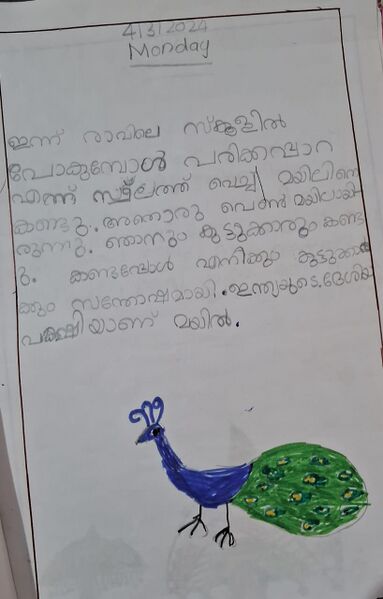 4/3/2024
Monday
ഇന്ന് രാവിലെ സ്കൂളിൽ
പോകുമ്പോൾ പരിക്കപ്പാറ
എന്ന് സ്ഥലത്ത് വെച്ച് മയിലിനെ
കണ്ടു. അതൊരു പെൺ മയിലായി
രുന്നു. ഞാനും കൂട്ടുക്കാരും കണ്ട
ു. കണ്ടപ്പോൾ എനിക്കും കൂട്ടുക്കാ
ക്കും സന്തോഷമായി. ഇന്ത്യയുടെ ദേശീയ
പക്ഷിയാണ് മയിൽ.